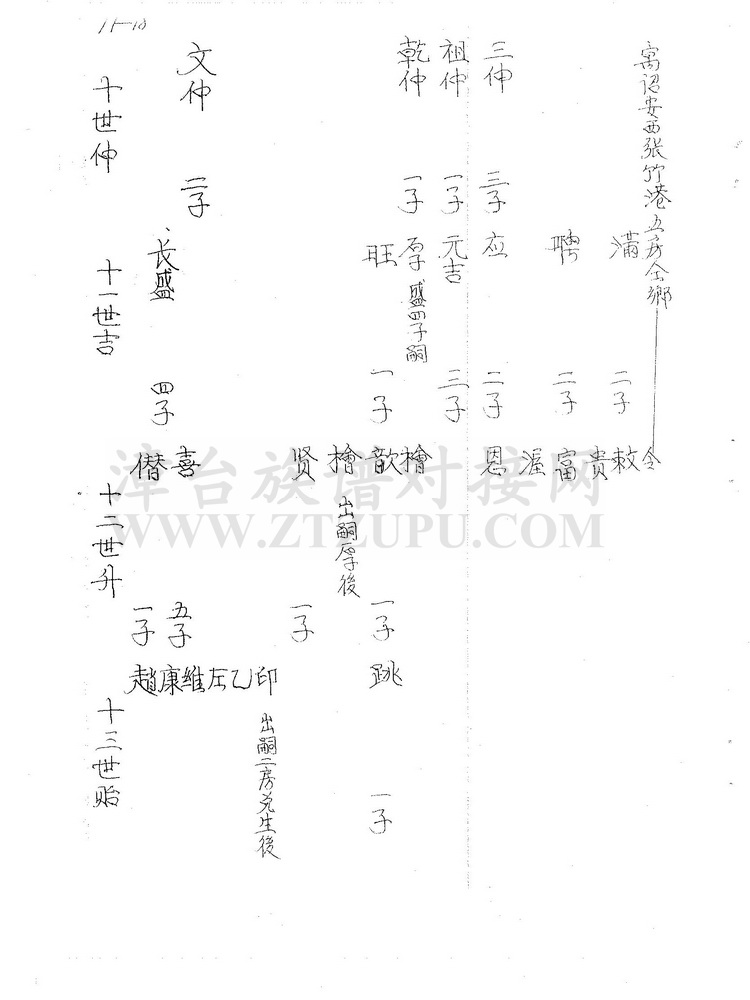 11-18
寓诏安西张竹港五房仝鄉
令
滿 二子 敕
貴
聘 二子 富
渥
三仲 三子 应 二子 恩
祖仲 一子 元吉 三子
乾仲 一子 厚 盛四子嗣 檜
旺 一子 歆 一子 跳 一子
檜 出嗣厚後
贤 一子 印 出嗣二房兑生後
文仲 二子 長盛 四子 喜 五子 乙 左 維 康
僣 一子 趙
十世仲 十一世吉 十二世升 十三世贻
漳台族谱对接网
WWW.ZTZUPU.COM